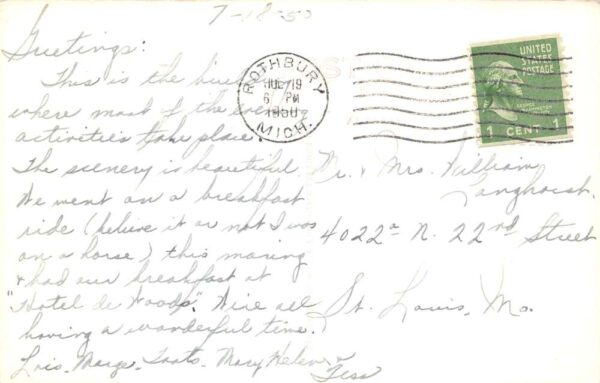 7-18-50
Greetings:
This is the
where most of the evening
activities take place.
The scenery is beautiful.
We went on a breakfast
ride (believe it or not I was
on a horse) this moring
& had our breakfast at
"Hotel de Woods". We're all
having a wonderful time.
Lois, Marge, Toots, Mary Helen &
Tess
ROTHBURY
JUL 19
6 PM
1950
MICH.
UNITED
STATES
POSTAGE
1 CENT 1
Mr. & Mrs. William
Langhorst
4022a N. 22nd Street
St. Louis, Mo.